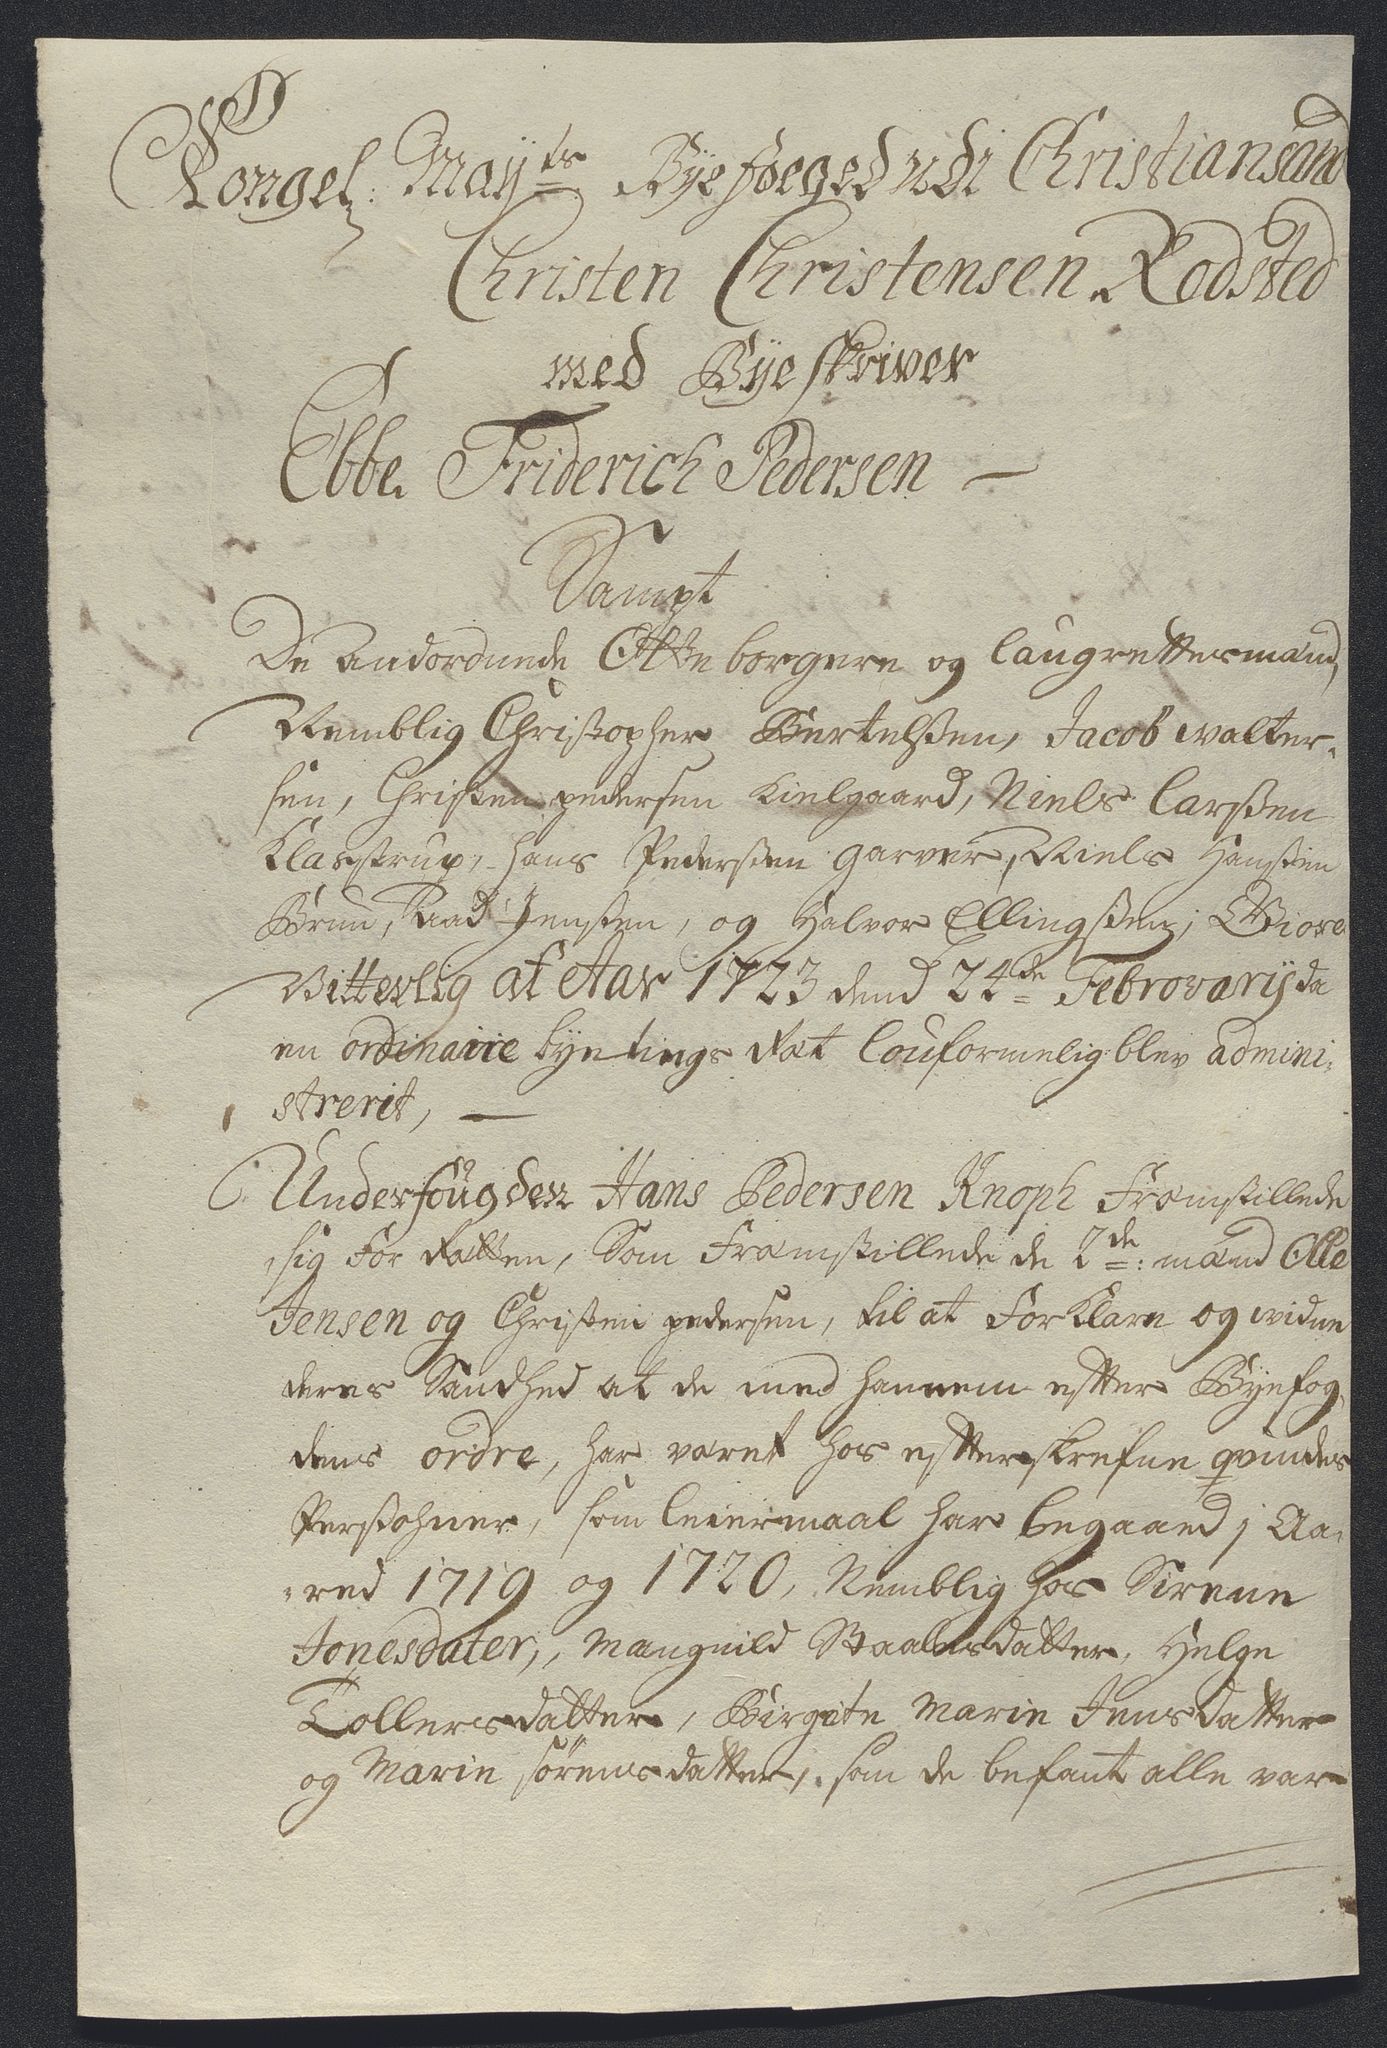 Kongel: May:ts Byefoeged udi Christiansand
Christen Christensen Rodsted
med Byeskriver
Ebbe Friderich Pedersen —
Sampt
De andordnede Otte borgere og laugrettesmænd,
Nemblig Christopher Bertelsßen, Jacob walter-
sen, Christen pedersen Kielgaard, Niels Larsßen
Klasstrup, hans Pedersßen garver, Niels Hansßen
Brun, Aad Jensßen, og Halvor Ellingsßen; Giøre
Vitterlig at Aar 1723 dend 24de Februarij da
en ordinaire byetings Ræt louformelig blev admini-
strerit, —
Underfougden Hans Pedersen Knoph Fremstillede
sig for Retten, Som Fremstillede de 2de: mænd Olle
Jensen og Christen pedersen, til at Forklare og vidne
deres Sandhed at de med hannem efter Byefog-
dens ordre, har været hos efterskrefne qvindes
Persßohner, som leiermaal har begaaed j Aa-
red 1719 og 1720, Nemblig hos Sirene
Jonesdater, Mangnild Staalesdatter, Helge
Tollersdatter, Birgite Marie Jensdatter
og Marie Sørensdatter, som de befant alle var